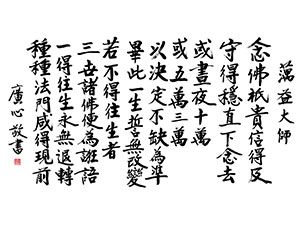 蕅益大師
念佛祇貴信得及
守得穩直下念去
或晝夜十萬
或五萬三萬
以決定不缺為準
畢此一生誓無改變
若不得往生者
三世諸佛便為誑語
一得往生永無退轉
種種法門咸得現前
廣心敬書